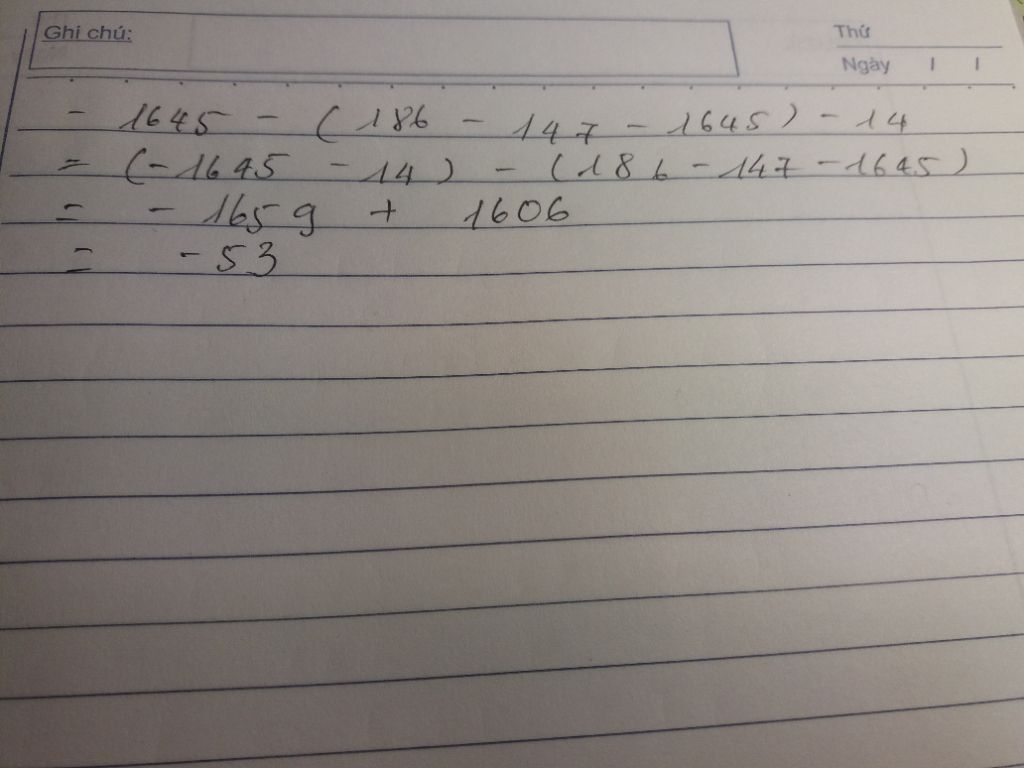 Ghi chú:
Thứ
Ngày / /
- 1645 - (186 - 147 - 1645) - 14
= (-1645 - 14) - (186 - 147 - 1645)
= - 1659 + 1606
= - 53